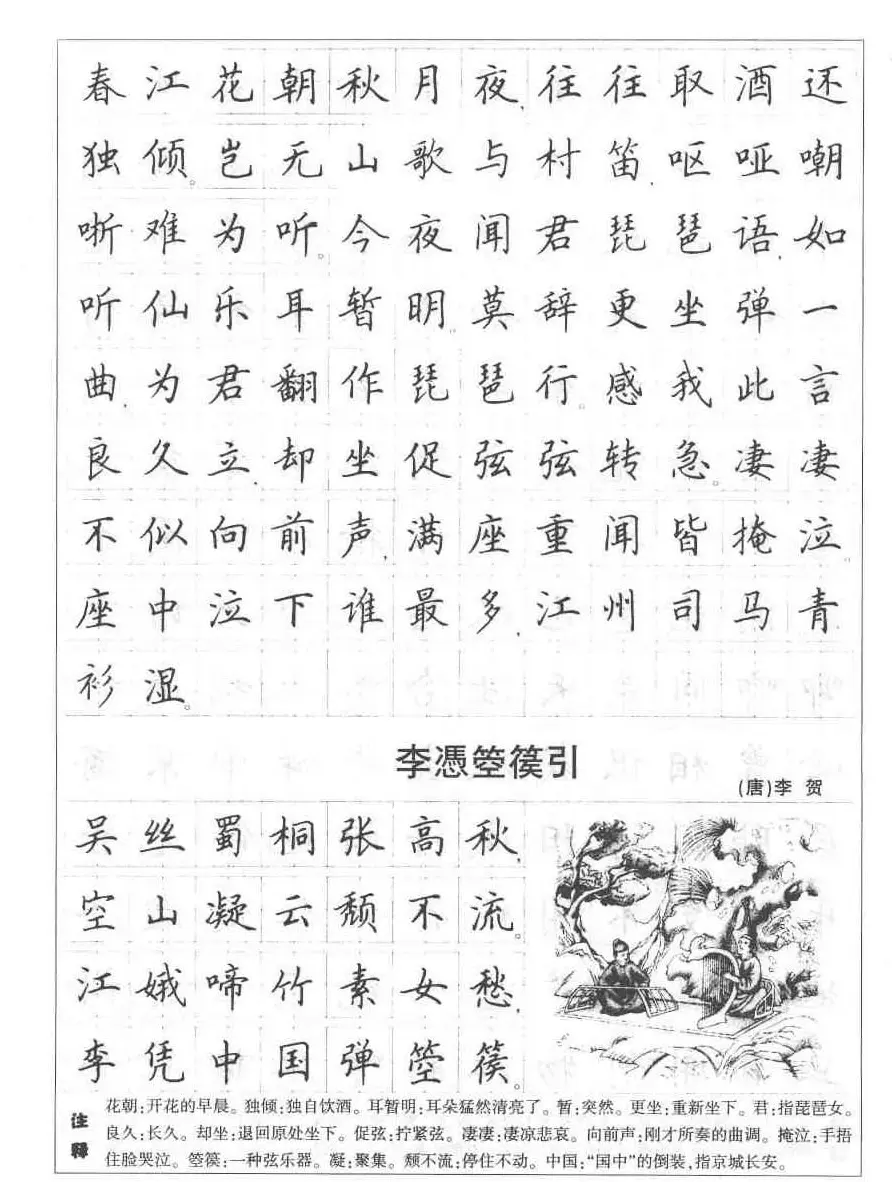 春江花朝秋月夜,往往取酒还
独倾。岂无山歌与村笛,呕哑嘲
哳难为听。今夜闻君琵琶语,如
听仙乐耳暂明。莫辞更坐弹一
曲,为君翻作琵琶行。感我此言
良久立,却坐促弦弦转急。凄凄
不似向前声,满座重闻皆掩泣。
座中泣下谁最多,江州司马青
衫湿。
李憑箜篌引
(唐)李 贺
吴丝蜀桐张高秋,
空山凝云颓不流。
江娥啼竹素女愁,
李凭中国弹箜篌。
注释
花朝:开花的早晨。独倾:独自饮酒。耳暂明:耳朵猛然清亮了。暂:突然。更坐:重新坐下。君:指琵琶女。
良久:长久。却坐:退回原处坐下。促弦:拧紧弦。凄凄:凄凉悲哀。向前声:刚才所奏的曲调。掩泣:手捂
住脸哭泣。箜篌:一种弦乐器。凝:聚集。颓不流:停住不动。中国:“国中”的倒装,指京城长安。